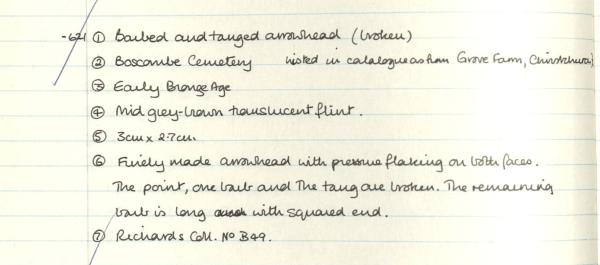 -621 ① Barbed and tanged arrowhead (broken)
② Boscombe Cemetery listed in catalogue as from Grove Farm, Christchurch
③ Early Bronze Age
④ Mid grey-brown translucent flint.
⑤ 3cm x 2.7cm.
⑥ Finely made arrowhead with pressure flaking on both faces.
The point, one barb and The tang are broken. The remaining
barb is long with squared end.
⑦ Richards Coll. No B49.